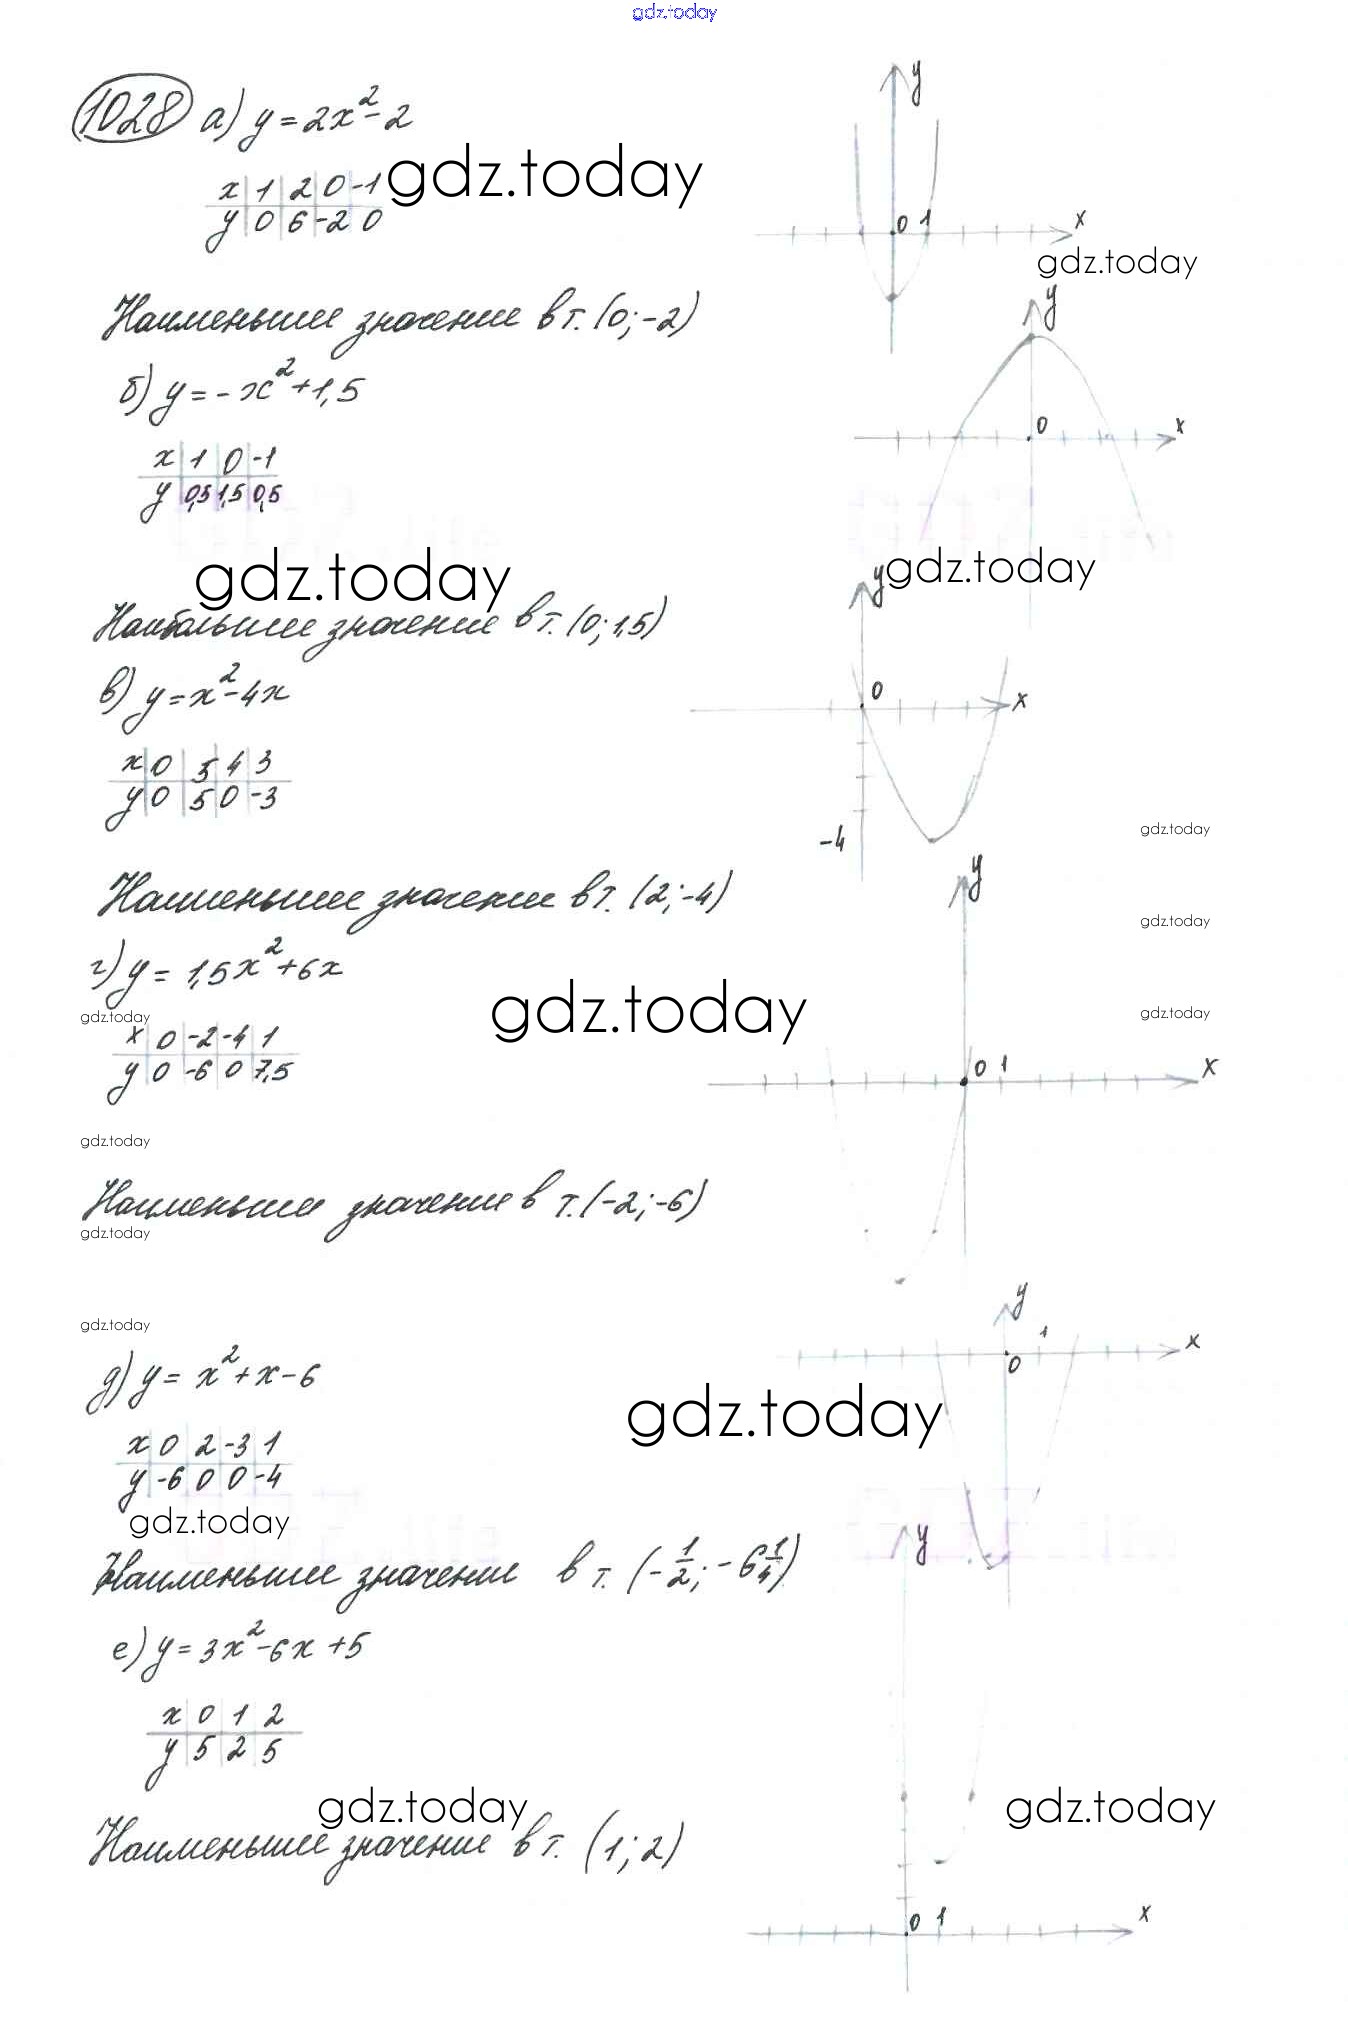 gdz.today
1028 а) y = 2x² - 2
x 1 2 0 -1
y 0 6 -2 0
gdz.today
y
0 1
x
gdz.today
Наименьшее значение в т. (0; -2)
б) y = -x² + 1,5
x 1 0 -1
y 0,5 1,5 0,5
y
0
x
gdz.today
gdz.today
Наибольшее значение в т. (0; 1,5)
в) y = x² - 4x
x 0 5 4 3
y 0 5 0 -3
y
0
x
-4
gdz.today
Наименьшее значение в т. (2; -4)
gdz.today
г) y = 1,5x² + 6x
gdz.today
gdz.today
gdz.today
x 0 -2 -4 1
y 0 -6 0 7,5
y
0 1
x
gdz.today
Наименьшее значение в т. (-2; -6)
gdz.today
gdz.today
д) y = x² + x - 6
x 0 2 -3 1
y -6 0 0 -4
y
1
x
0
gdz.today
gdz.today
Наименьшее значение в т. (-1/2; -6 1/4)
е) y = 3x² - 6x + 5
x 0 1 2
y 5 2 5
y
gdz.today
gdz.today
Наименьшее значение в т. (1; 2)
0 1
x